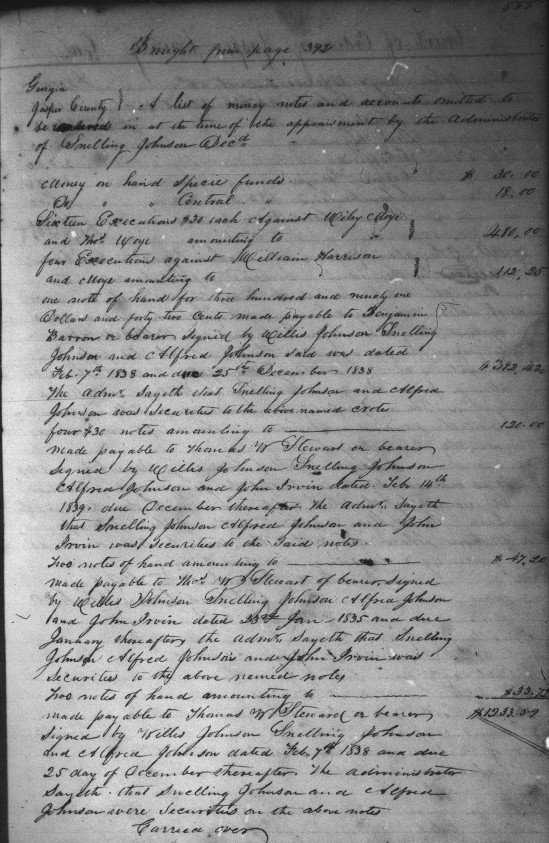 Brought from page 392
Georgia
Jasper County } A list of money notes and accounts omitted to
be in at the time of the appraisment by the Administrator
of Snelling Johnson Decd
Money on hand Specie funds. $ 30.00
Do " " Central " 18.00
Sixteen Executions $30 each Against Wiley Moye
and Thos Moye amounting to " } 480,00
four Executions against William Harrison
and Moye amounting to } 112,25
one noth of hand for three hundred and ninety one
Dollars and forty two Cents made payable to Benjamin
Barron or bearer Signed by Willis Johnson Snelling
Johnson and Alfred Johnson said was dated
Feb. 7th 1838 and due 25th December 1838 42
The Admr. Sayeth that Snelling Johnson and Alfred
Johnson was Securities to the above named
four $30 notes amounting to 120.00
made payable to Thomas W Stewart or bearer
Signed by Willis Johnson Snelling Johnson
Alfred Johnson and John Irvin dated Feb 14th
1839. due December thereafter The Admr. Sayeth
that Snelling Johnson Alfred Johnson and John
Irvin was Securities to the said notes.
Two notes of hand amounting to $ 47,20
made payable to Thos. W Stewart of bearer Signed
by Willis Johnson Snelling Johnson Alfred Johnson
and John Irvin dated Jan 1835 and due
January thereafter the Admr. Sayeth that Snelling
Johnson Alfred Johnson and John Irvin was
Securities to the above named notes
Two notes of hand amounting to $33.72
made payable to Thomas W Steward or bearer $1233.59
Signed by Willis Johnson Snelling Johnson
and Alfred Johnson dated Feb, 7th 1838 and due
25 day of December thereafter. The administrator
Sayeth that Snelling Johnson and Alfred
Johnson were Securities on the above notes
Carried over